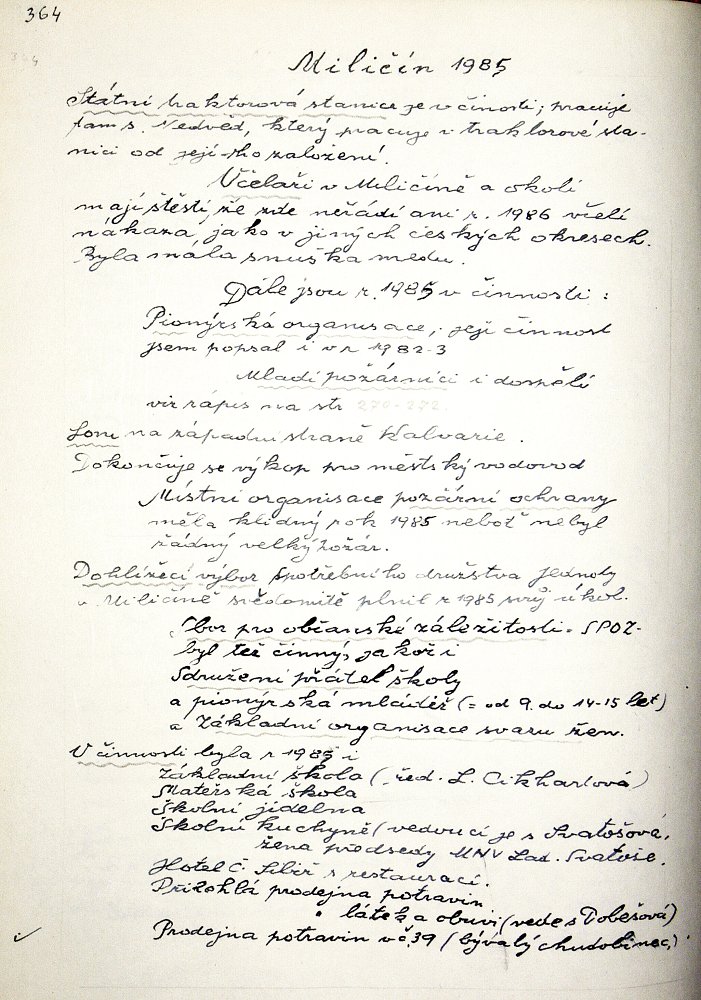 364
Miličín 1985
Státní traktorová stanice je v činosti; pracuje
tam s. Nedvěd, který pracuje v traktorové sta-
nici od její-ho založení.
Včelaři v Miličíně a okolí
mají štěstí, že zde neřádí ani r. 1986 včelí
nákaza, jako v jiných českých okresech.
Byla malá snuška medu.
Dále jsou r. 1985 v činnosti:
Pionýrská organisace, její činnost
jsem popsal i v r 1982-3
Mladí požárníci i dospělí
viz zápis na str 270-272.
Lom na západní straně Kalvarie.
Dokončuje se výkop pro městský vodovod
Místní organisace požární ochrany
měla klidný rok 1985 neboť nebyl
žádný velký požár.
Dohlížecí výbor Spotřebního družstva Jednoty
v Miličíně svědomitě plnil r 1985 svůj úkol.
Sbor pro občanské záležitosti - SPOZ-
byl též činný, jakož i
Sdružení přátel školy
a pionýrská mládež (= od 9. do 14-15 let)
a Základní organisace svazu žen.
V činnosti byla r 1985 i
Základní škola (řed. L. Cikhartová)
Mateřská škola
Školní jídelna
Školní kuchyně (vedoucí je s Svatošová,
žena předsedy MNV Lad. Svatoše.
Hotel Č. Sibiř s restaurací.
Přízohlá prodejna potravin
" látek a obuvi (vede s Dobešová)
Prodejna potravin v č. 39 (bývalý chudobinec)